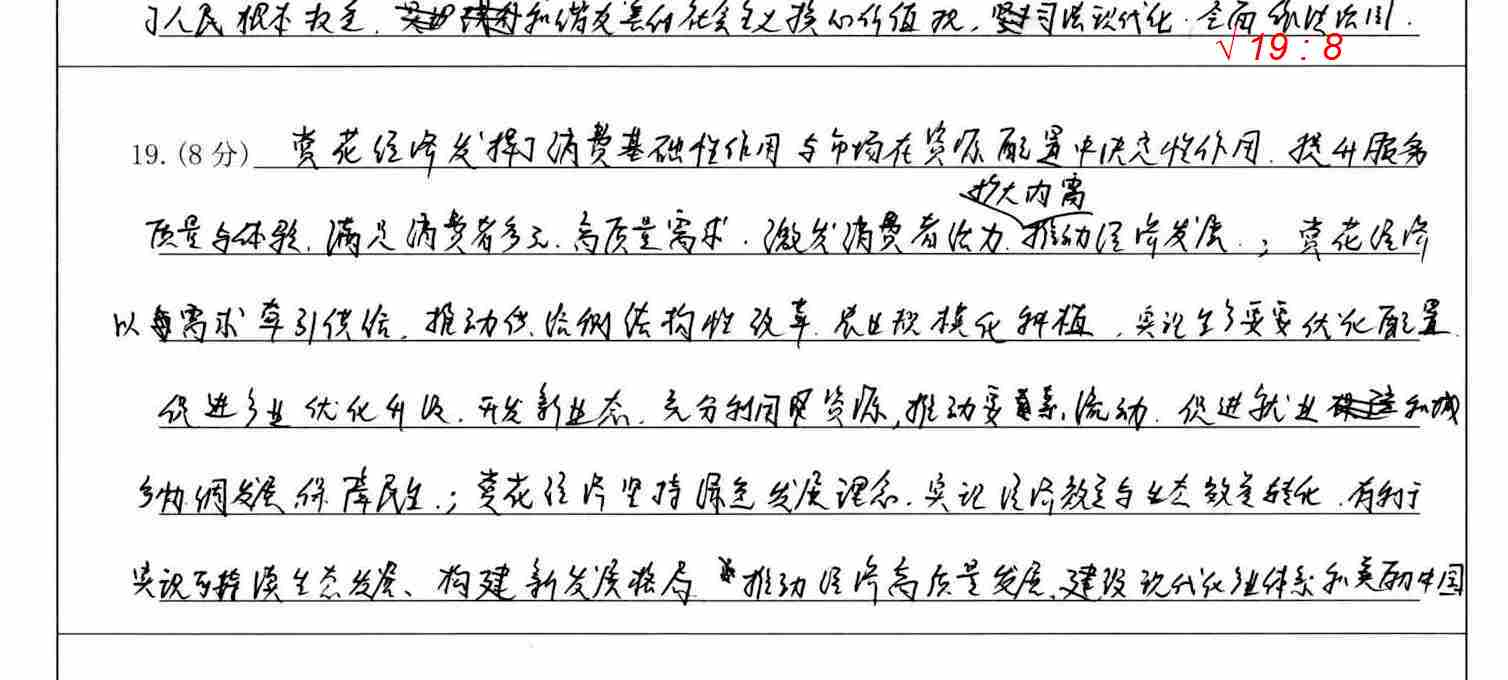 了人民根本权益,和谐友善的社会主义核心价值观,坚持司法现代化,全面依法治国.
√ 19 : 8
19.(8分) 赏花经济发挥了消费基础性作用与市场在资源配置中决定性作用.提升服务
扩大内需
质量与体验.满足消费者多元.高质量需求.激发消费者活力.推动经济发展.;赏花经济
以需求牵引供给,推动供给侧结构性改革.农业规模化种植,实现生产要素优化配置.
促进产业优化升级.开发新业态.充分利用资源,推动要素流动.促进就业和城
乡协调发展保障民生.;赏花经济坚持绿色发展理念.实现经济效益与生态效益转化.有利于
实现可持续生态发展、构建新发展格局 推动经济高质量发展.建设现代化产业体系和美丽中国